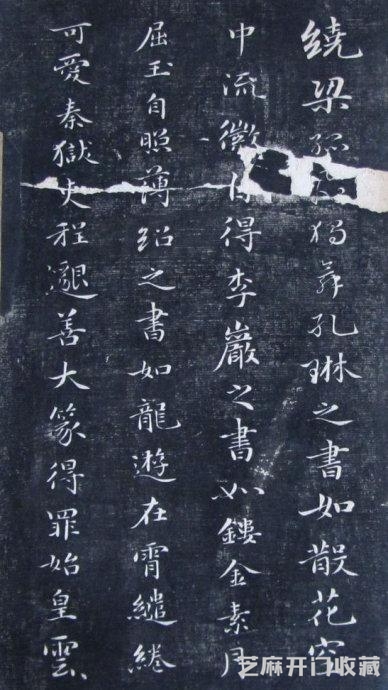 繞梁孤獨舞孔琳之書如散花空
中流徽自得李巖之書如鏤金素月
屈玉自照薄紹之書如龍遊在霄繾綣
可愛秦獄吏程邈善大篆得罪始皇雲
芝麻开门收藏